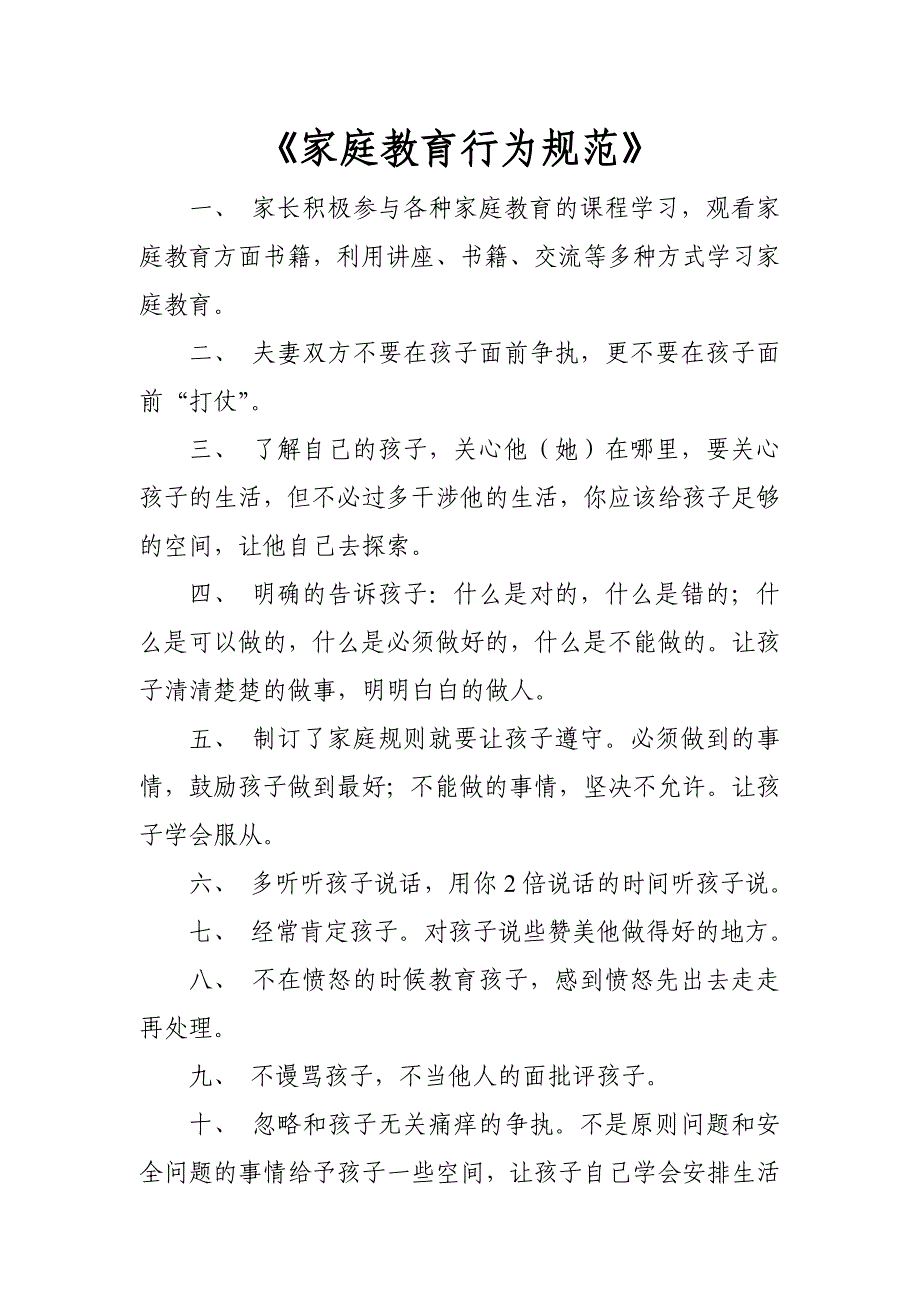 《家庭教育行为规范》
一、 家长积极参与各种家庭教育的课程学习，观看家
庭教育方面书籍，利用讲座、书籍、交流等多种方式学习家
庭教育。
二、 夫妻双方不要在孩子面前争执，更不要在孩子面
前“打仗”。
三、 了解自己的孩子，关心他（她）在哪里，要关心
孩子的生活，但不必过多干涉他的生活，你应该给孩子足够
的空间，让他自己去探索。
四、 明确的告诉孩子：什么是对的，什么是错的；什
么是可以做的，什么是必须做好的，什么是不能做的。让孩
子清清楚楚的做事，明明白白的做人。
五、 制订了家庭规则就要让孩子遵守。必须做到的事
情，鼓励孩子做到最好；不能做的事情，坚决不允许。让孩
子学会服从。
六、 多听听孩子说话，用你2倍说话的时间听孩子说。
七、 经常肯定孩子。对孩子说些赞美他做得好的地方。
八、 不在愤怒的时候教育孩子，感到愤怒先出去走走
再处理。
九、 不谩骂孩子，不当他人的面批评孩子。
十、 忽略和孩子无关痛痒的争执。不是原则问题和安
全问题的事情给予孩子一些空间，让孩子自己学会安排生活